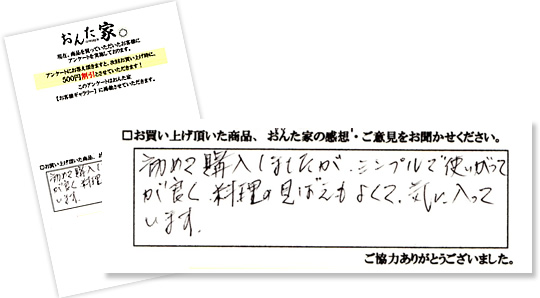 おんた家。
現在、商品を買っていただいたお客様に
アンケートを実施しております。
アンケートにお答え頂きますと、次回お買い上げ時に、
500円割引とさせていただきます！
このアンケートはおんた家
【お客様ギャラリー】に掲載させていただきます。
□お買い上げ頂いた商品、お
初めて購入し
が良く、料理
います。
□お買い上げ頂いた商品、おんた家の感想・ご意見をお聞かせください。
初めて購入しましたが、シンプルで使いがって
が良く、料理の見ばえもよくて、気に入って
います。
ご協力ありがとうございました。